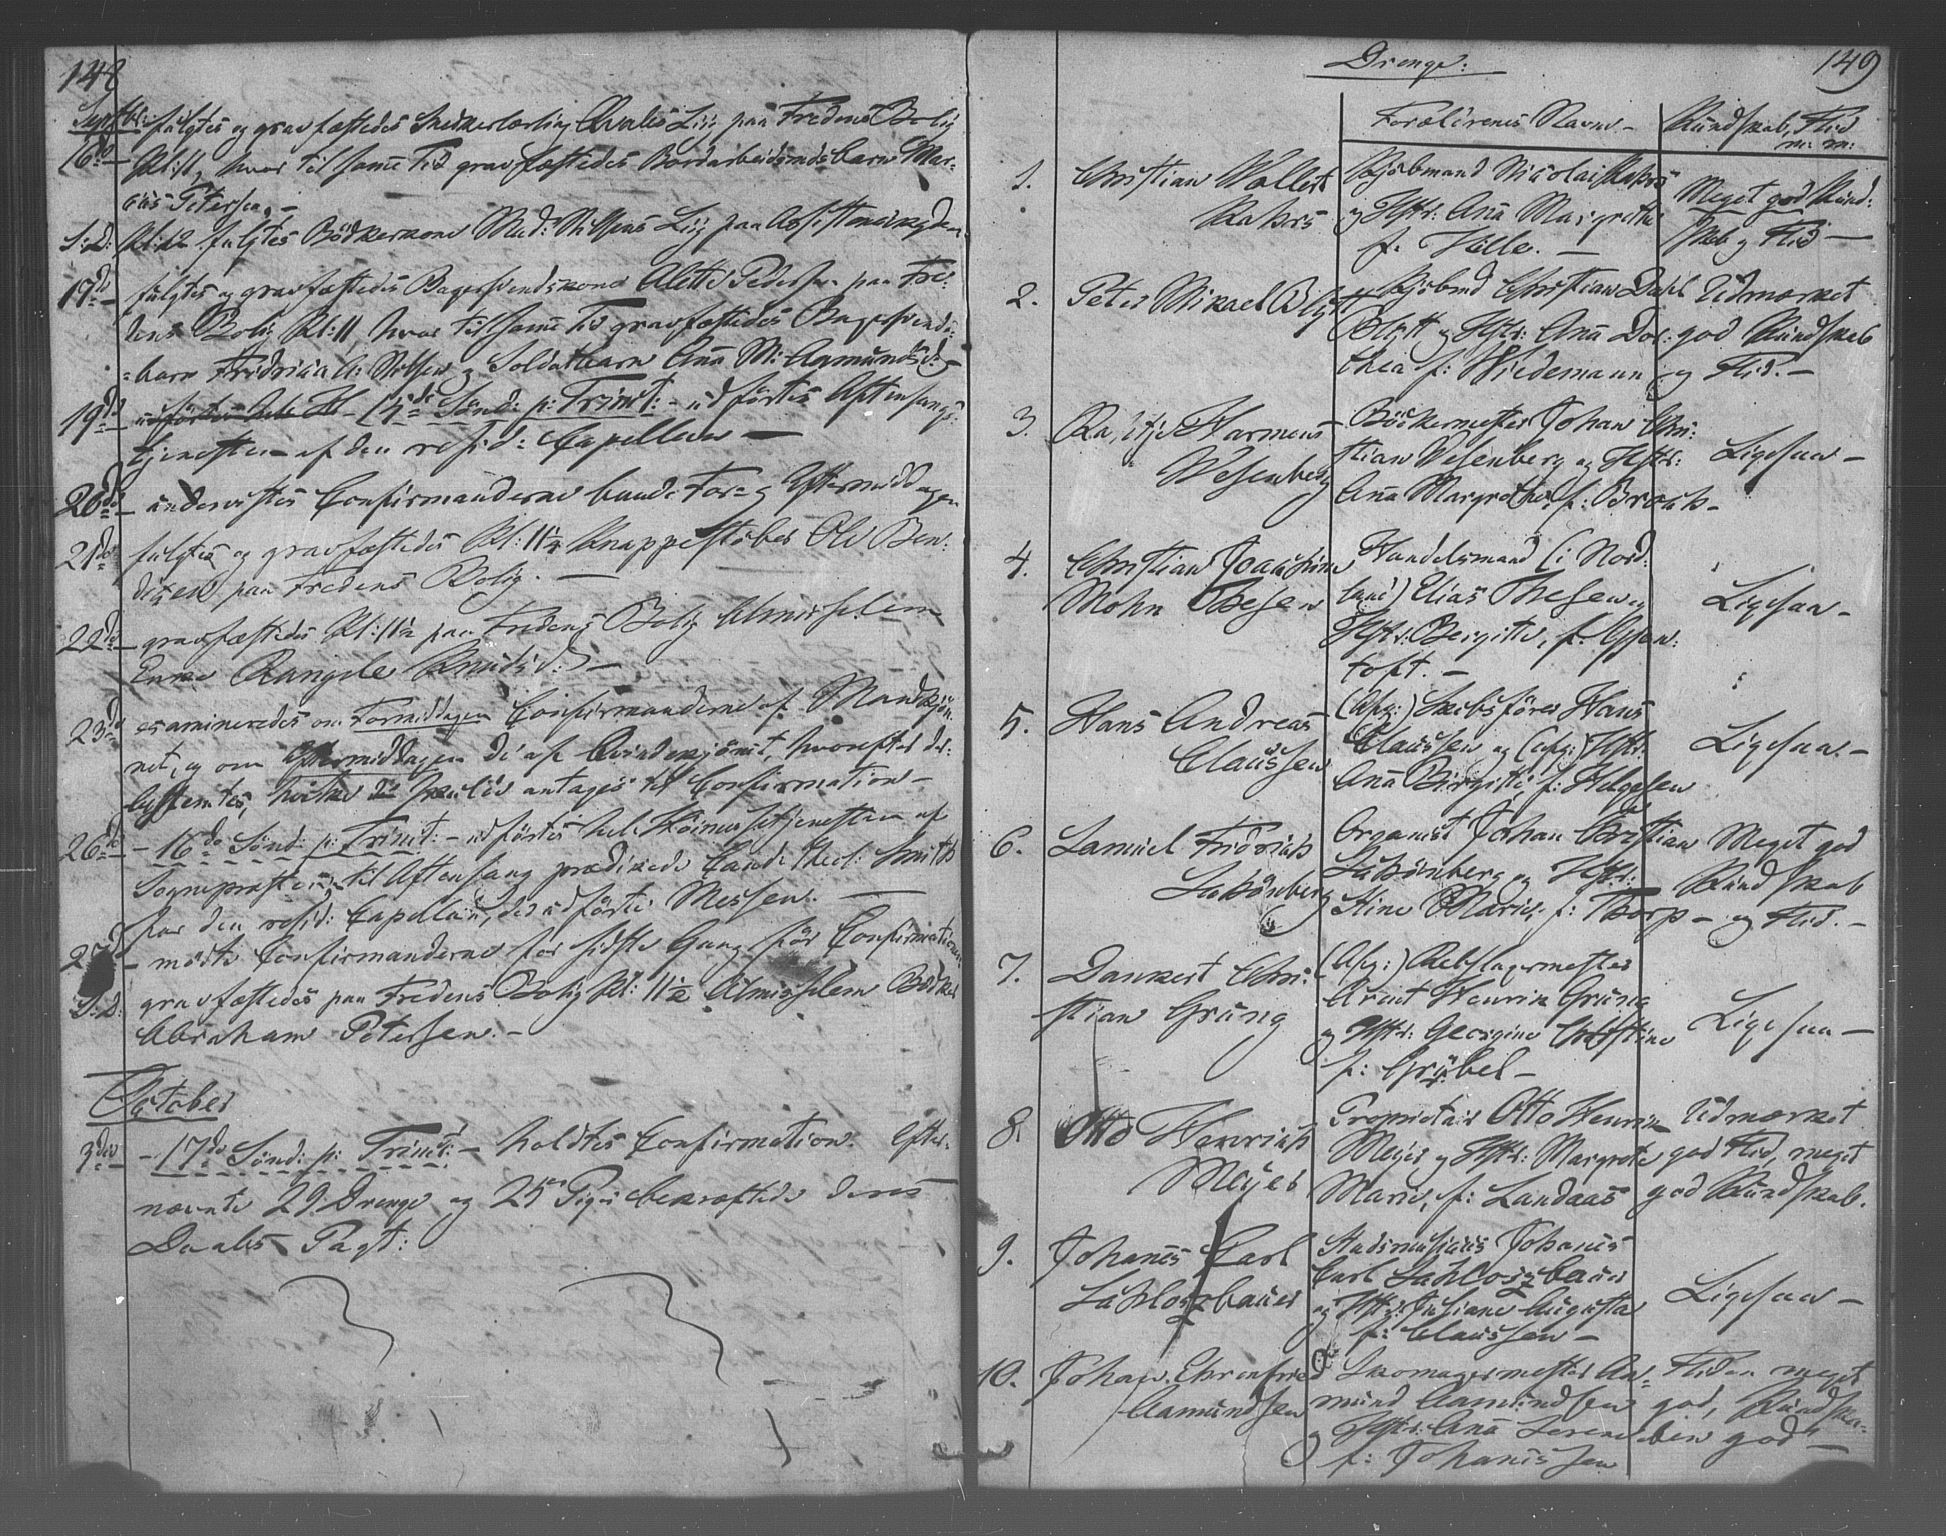 148
Septbr:
16de – fulgtes og gravfæstedes Snedkerlærling Qvales Liig paa Fredens Bolig
Kl: 11, hvor til samme Tid gravfæstedes Bordarbeidsmdsbarn Mar-
cus Petersen. –
S: D: Kl: 12 fulgtes Bödkerkone Mad: Nilssens Liig paa Assistentkirkegden
17de – fulgtes og gravfæstedes Bagersvendskone Alette Pedersen paa Fre-
dens Bolig Kl: 11, hvor til samme Tid gravfæstedes Bagersvends-
barn Fredrikka A: Nilssen og Soldatbarn Anna M: Aamundsd:
19de – 15de Sönd: p: Trinit: – udförtes Aftensangs-
tjenesten af den resid: Capellan –
20de – undervistes Confirmanderne baade For- og Eftermiddagen
21de – fulgtes og gravfæstedes Kl: 11½ Knappestöber Ole Ben-
dixen paa Fredens Bolig. –
22de – gravfæstedes Kl: 11½ paa Fredens Bolig Almisselem
Enke Rangele Knudsd: –
23de – examineredes om Formiddagen Confirmanderne af Mandkjön-
net, og om Eftermiddagen de af Qvindekjönnet, hvorefter det
bestemtes, hvilke antages til Confirmation –
26de – 16de Sönd: p: Trinit: – udförtes hele Höimessetjenesten af
Sognepræsten; til Aftensang prædikede Cand: theol: Smith
for den resid: Capellan, der udförte Messen. –
27de – mödte Confirmanderne for sidste Gang för Confirmationen
S: D: gravfæstedes paa Fredens Bolig Kl: 11½ Almisselem Bödker
Abraham Petersen. –
October
3die – 17de Sönd: p: Trinit: – holdtes Confirmation. Efter-
nævnte 29 Drenge og 25 Piger bekræftede deres
Daabs Pagt:
Drenge:
149
Forældrenes Navne – Kundskab, Flid
m: m:
1. Christian Wollert
Rahrs
Kjöbmand Nicolai Rahrs
og Hstr: Anna Margrethe
f. Hille. –
Meget god Kund-
skab og Flid –
2. Peter Mikael Blytt
Kjöbmd Christian Dahl
Blytt og Hstr: Anna Doro-
thea f: Wiedemann
Udmærket
god Kundskab
og Flid. –
3. Harmens
Wesenberg
Bödkermester Johan Chri-
stian Wesenberg og Hstr:
Anna Margrethe f: Brock –
Ligesaa –
4. Christian Joachim
Mohn Thesen
Handelsmand (i Nord-
land) Elias Thesen og
Hstr: Bergitte, f.
toft. –
Ligesaa –
5. Hans Andreas
Claussen
(Afg:) Skibsförer Hans
Claussen og (afg:) Hstr:
Anna Birgitte, f: Helgesen
Ligesaa. –
6. Samuel Fridrich
Schönberg
Organist Johan Christian
Schönberg og Hstr:
Stine Marie f: Thorp –
Meget god
Kundskab
og Flid. –
7. Dankert Chri-
stian Grung
(Afg:) Rebslagermester
Arent Henrik Grung
og Hstr: Georgine Christine
f: Grübel –
Ligesaa –
8. Otto Henrich
Meyer
Proprietair Otto Henrik
Meyer og Hstr: Margrete
Marie, f: Landaas
Udmærket
god Flid, meget
god Kundskab.
9. Johannes Carl
Schloszbauer
Stadsmusicus Johannes
Carl Schloszbauer
og Hstr: Susanne Augusta
f: Claussen –
Ligesaa –
10. Johan Ehrenfried
Aamundsen
Skomagermester Aa-
mund Aamundsen
og Hstr: Anna Serene
f: Johannessen
Fliden meget
god, Kundska-
ben god –